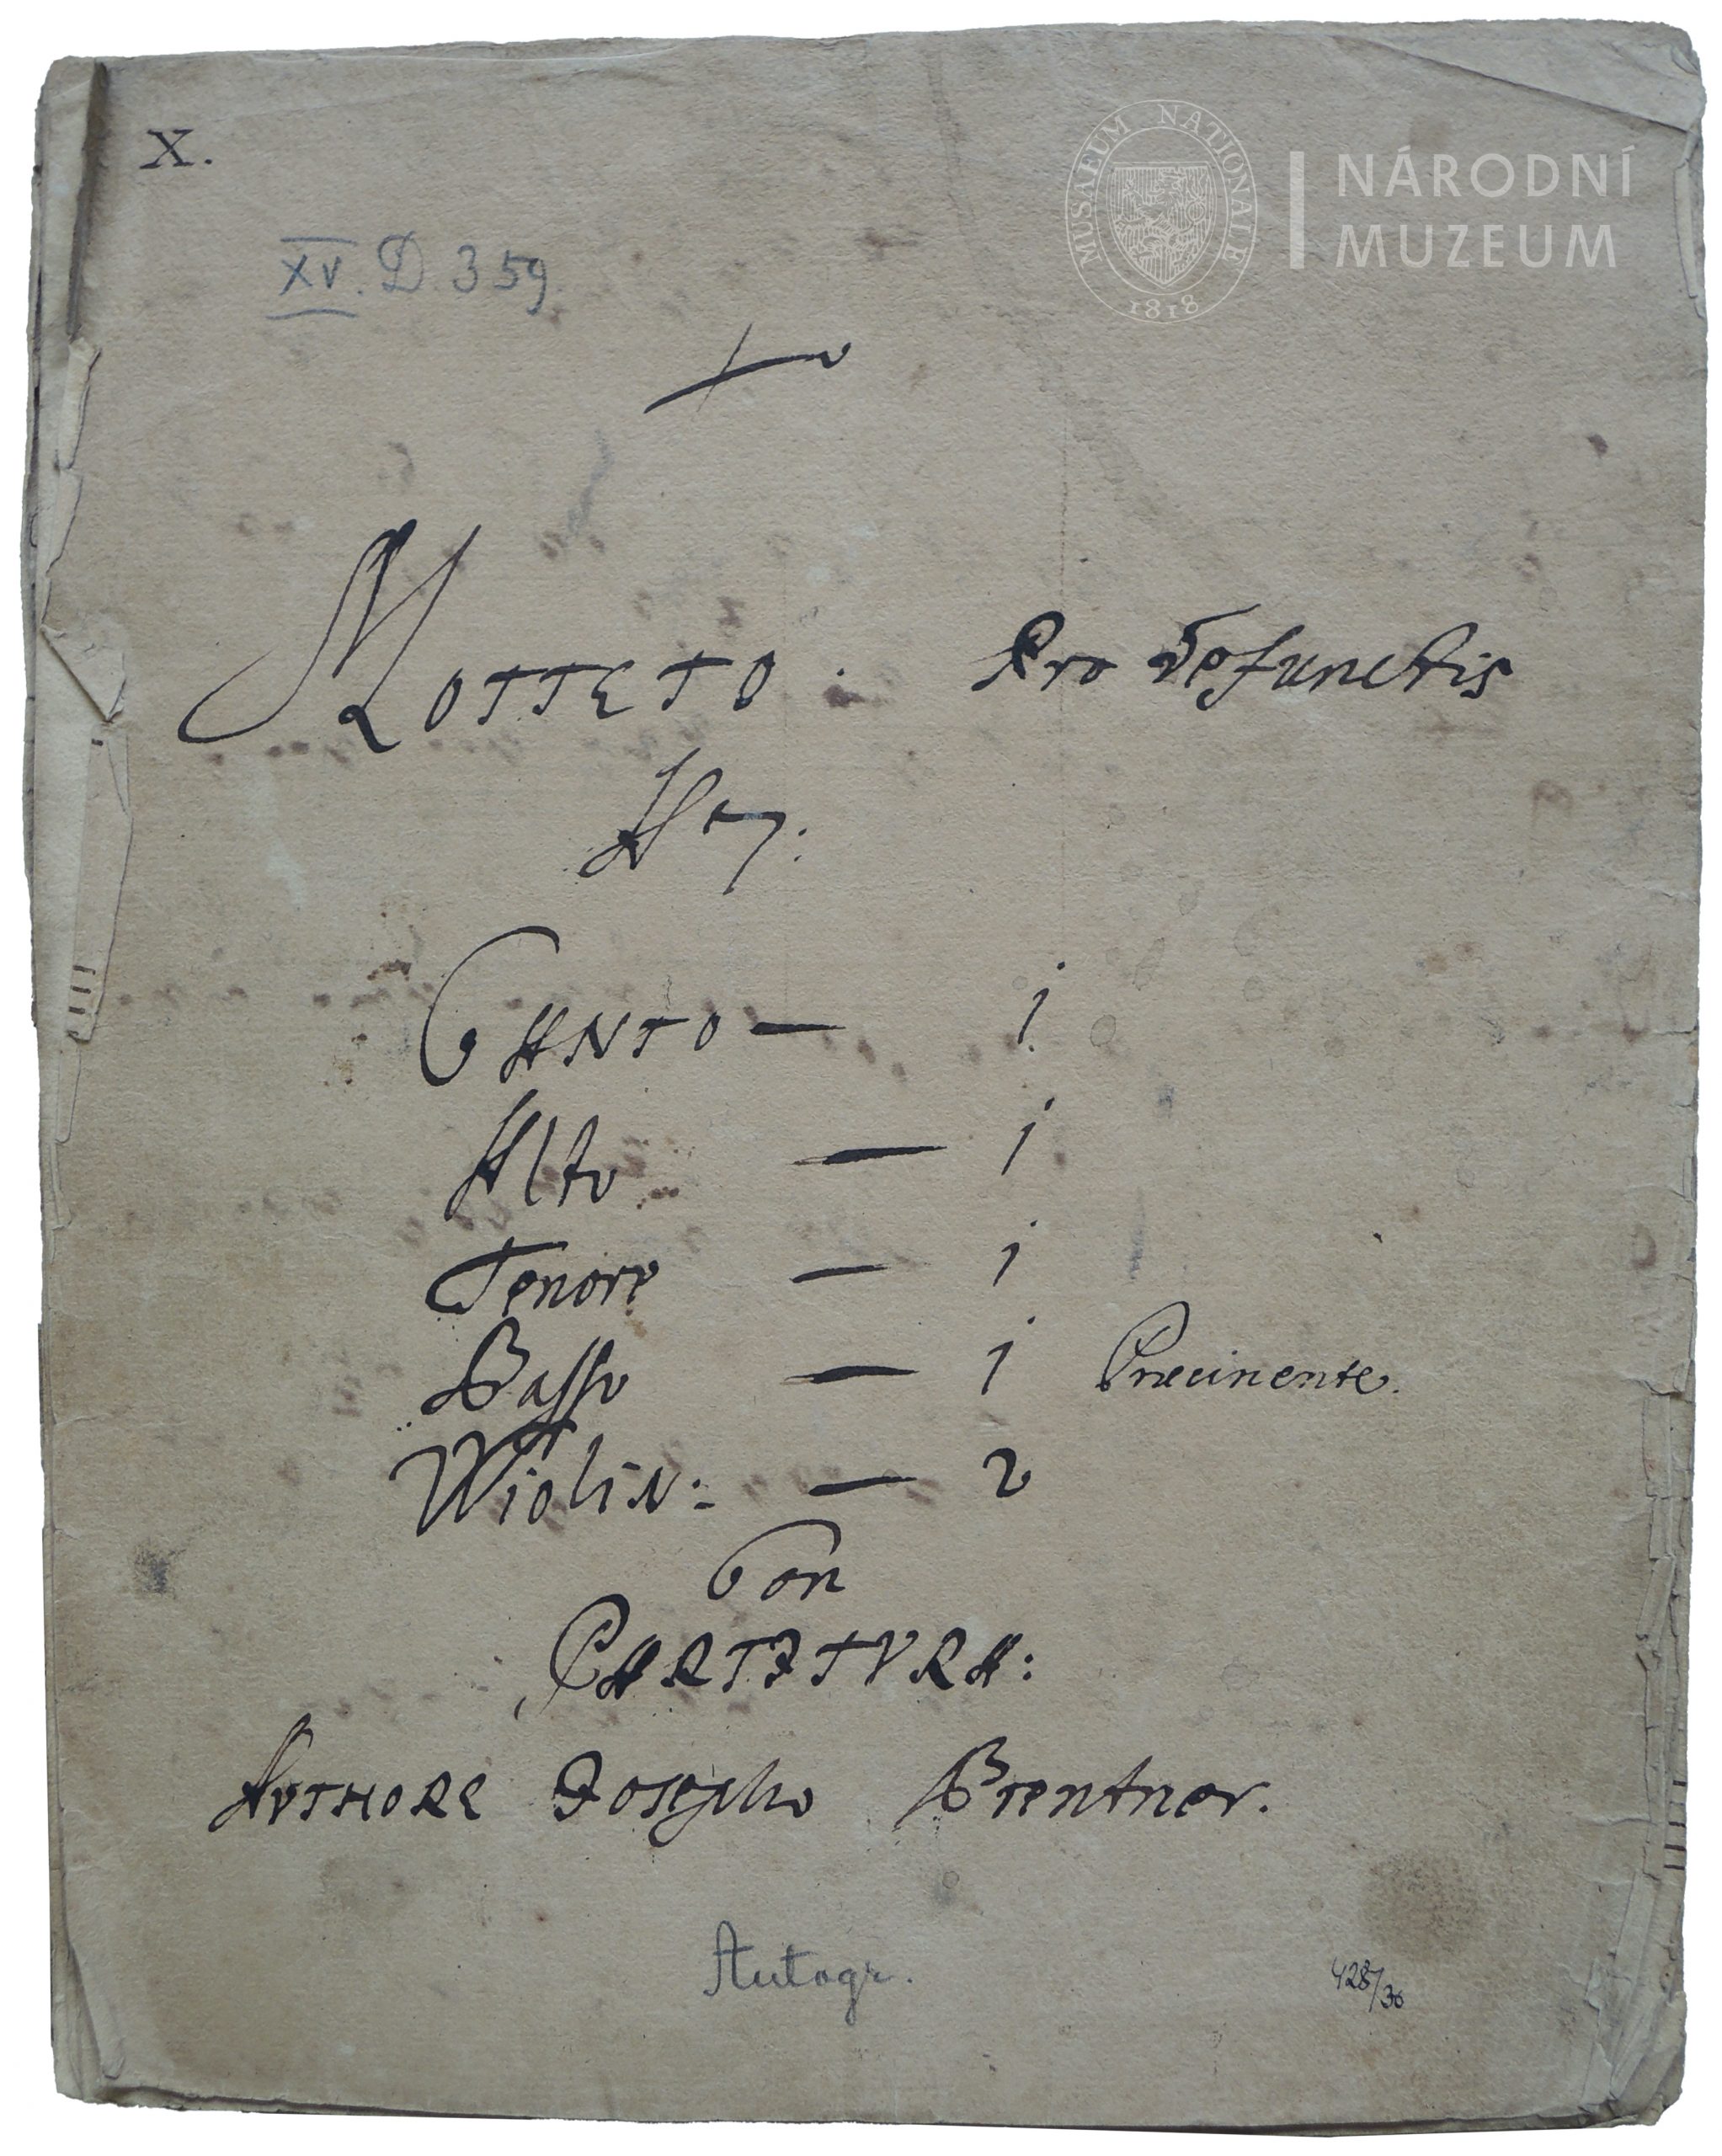 X.
MUSAEUM NATIONALE
1818
NÁRODNÍ
MUZEUM
XV. D. 359.
MOTTETO. Pro Defunctis
A 7:
CANTO — 1
Alto — 1
Tenore — 1
Basso — 1 Precinente.
Wiolin: — 2
Con
PARTITVRA:
AVTHORE Josepho Brentner.
Autogr.
428/36